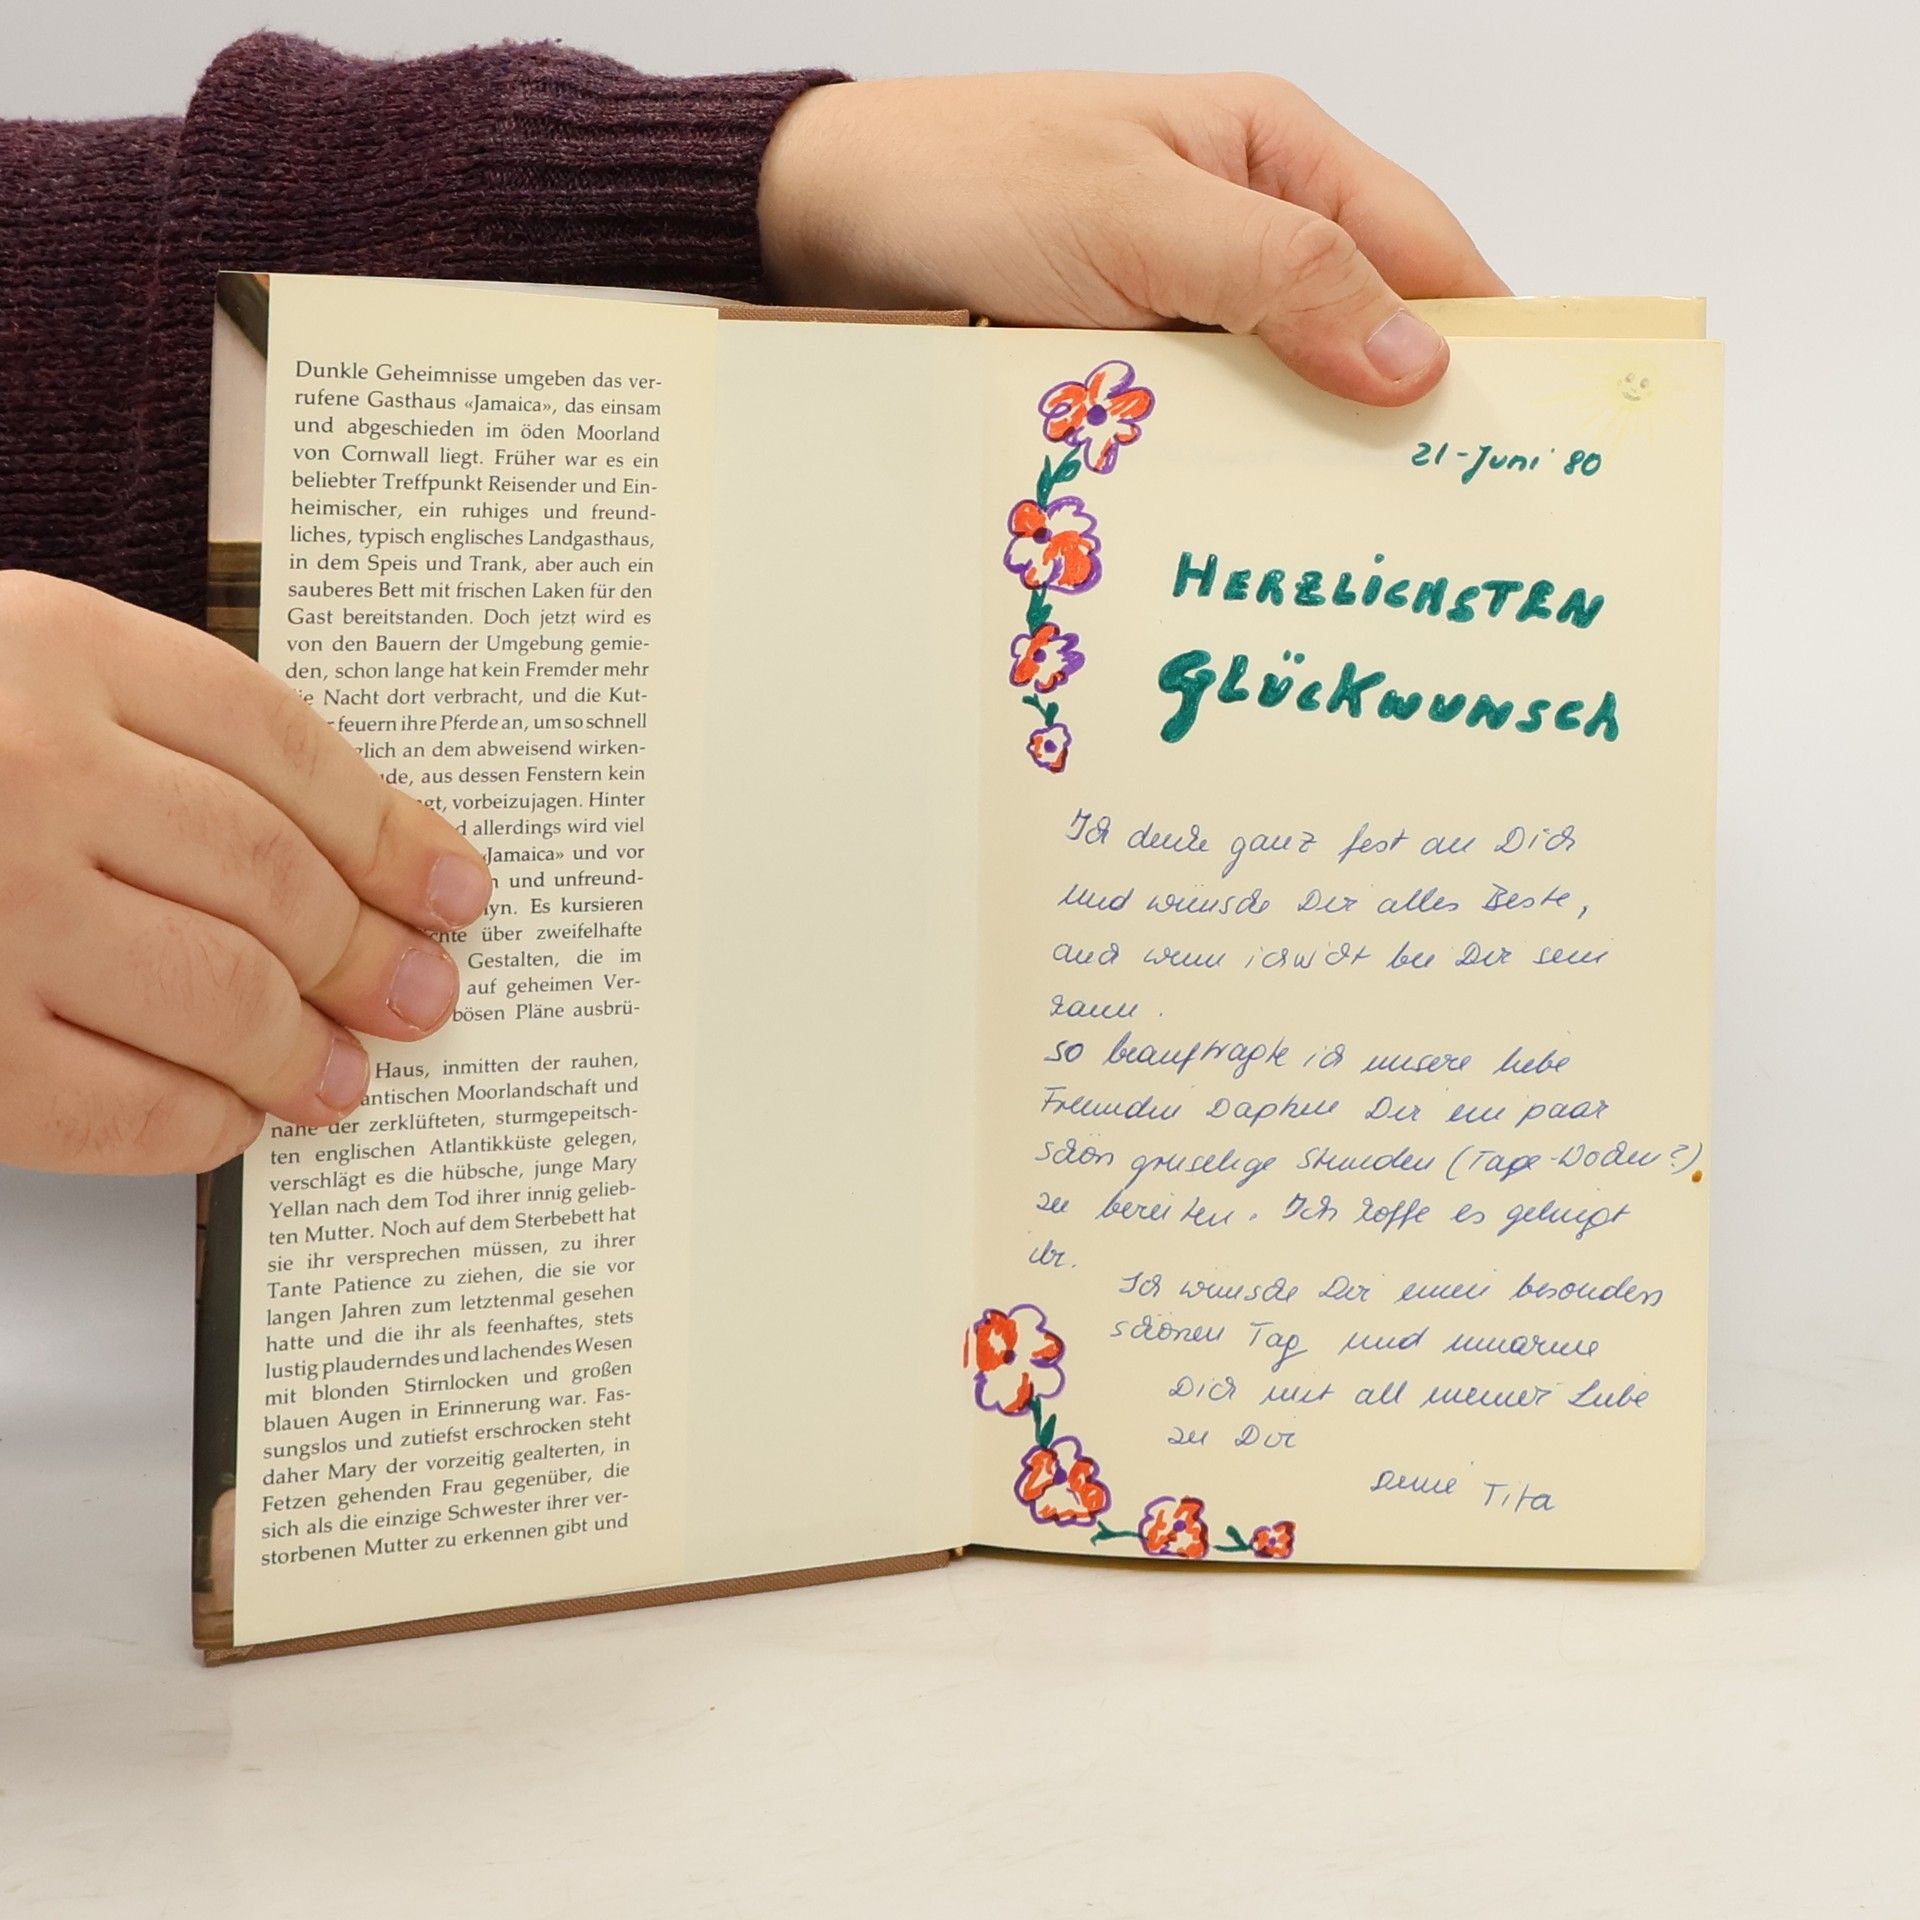 Dunkle Geheimnisse umgeben das ver-
rufene Gasthaus «Jamaica», das einsam
und abgeschieden im öden Moorland
von Cornwall liegt. Früher war es ein
beliebter Treffpunkt Reisender und Ein-
heimischer, ein ruhiges und freund-
liches, typisch englisches Landgasthaus,
in dem Speis und Trank, aber auch ein
sauberes Bett mit frischen Laken für den
Gast bereitstanden. Doch jetzt wird es
von den Bauern der Umgebung gemie-
den, schon lange hat kein Fremder mehr
Nacht dort verbracht, und die Kut-
feuern ihre Pferde an, um so schnell
glich an dem abweisend wirken-
ude, aus dessen Fenstern kein
gt, vorbeizujagen. Hinter
d allerdings wird viel
«Jamaica» und vor
n und unfreund-
lyn. Es kursieren
chte über zweifelhafte
Gestalten, die im
auf geheimen Ver-
bösen Pläne ausbrü-
Haus, inmitten der rauhen,
antischen Moorlandschaft und
nahe der zerklüfteten, sturmgepeitsch-
ten englischen Atlantikküste gelegen,
verschlägt es die hübsche, junge Mary
Yellan nach dem Tod ihrer innig gelieb-
ten Mutter. Noch auf dem Sterbebett hat
sie ihr versprechen müssen, zu ihrer
Tante Patience zu ziehen, die sie vor
langen Jahren zum letztenmal gesehen
hatte und die ihr als feenhaftes, stets
lustig plauderndes und lachendes Wesen
mit blonden Stirnlocken und großen
blauen Augen in Erinnerung war. Fas-
sungslos und zutiefst erschrocken steht
daher Mary der vorzeitig gealterten, in
Fetzen gehenden Frau gegenüber, die
sich als die einzige Schwester ihrer ver-
storbenen Mutter zu erkennen gibt und
21-Juni 80
HERZLICHSTEN
GLÜCKWUNSCH
Ich denke ganz fest an Dich
und wünsche Dir alles Beste,
auch wenn ich nicht bei Dir sein
kann.
so beauftragte ich unsere liebe
Freundin Daphne Dir ein paar
schön gruselige Stunden (Tage-Wochen?)
zu bereiten. Ich hoffe es gelingt
ihr.
Ich wünsche Dir einen besonders
schönen Tag und umarme
Dich mit all meiner Liebe
zu Dir
Deine Tita